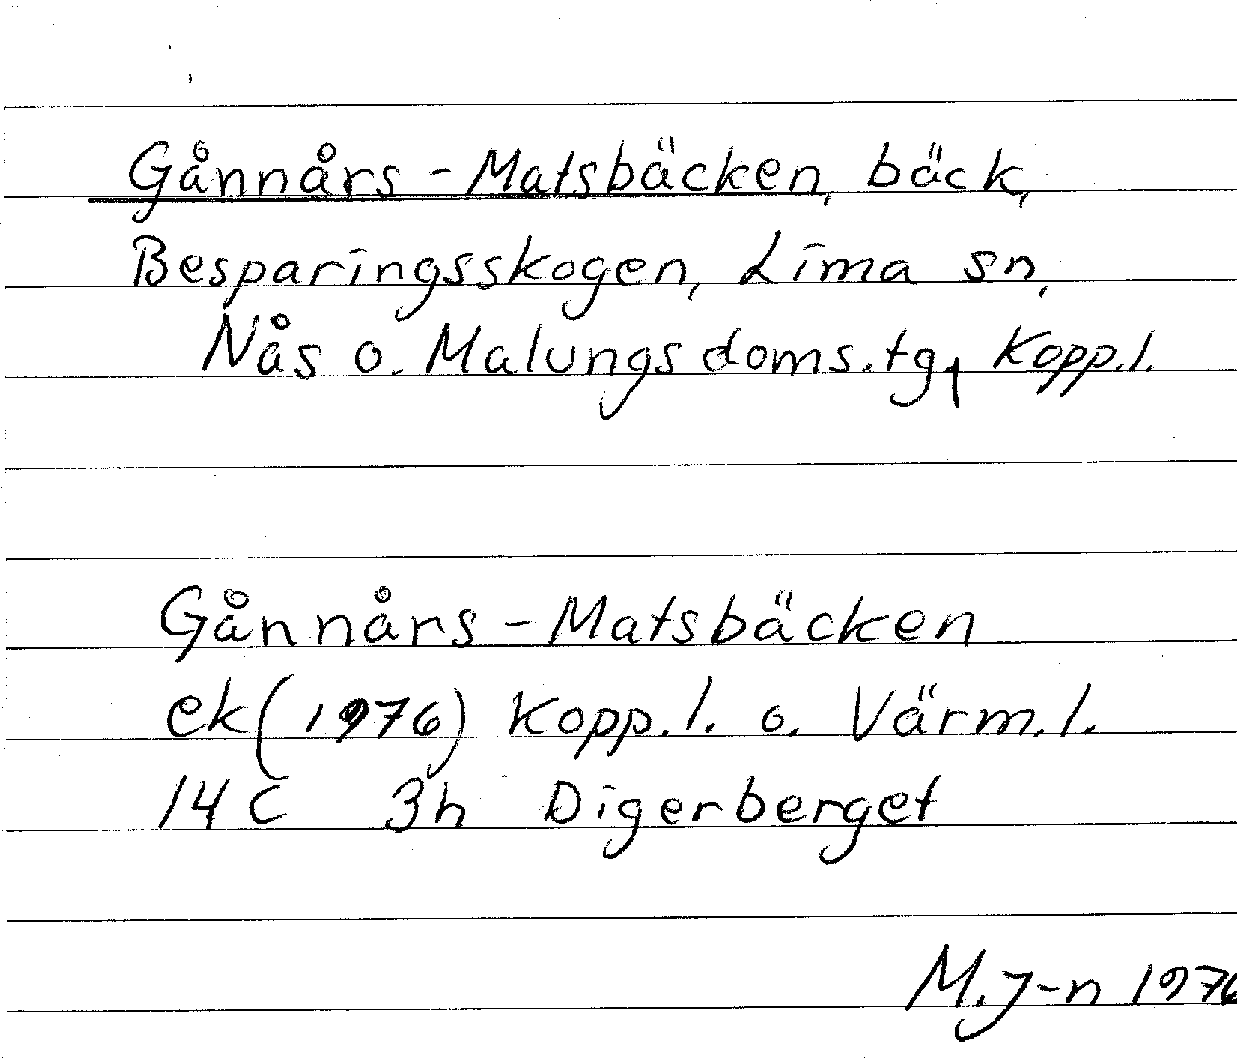 Gånnårs-Matsbäcken, bäck,
Besparingsskogen, Lima sn,
Nås o. Malungs doms.tg, Kopp.l.
Gånnårs-Matsbäcken
ek (1976) Kopp.l. o. Värm.l.
14 C 3h Digerberget
M.J-n 1976